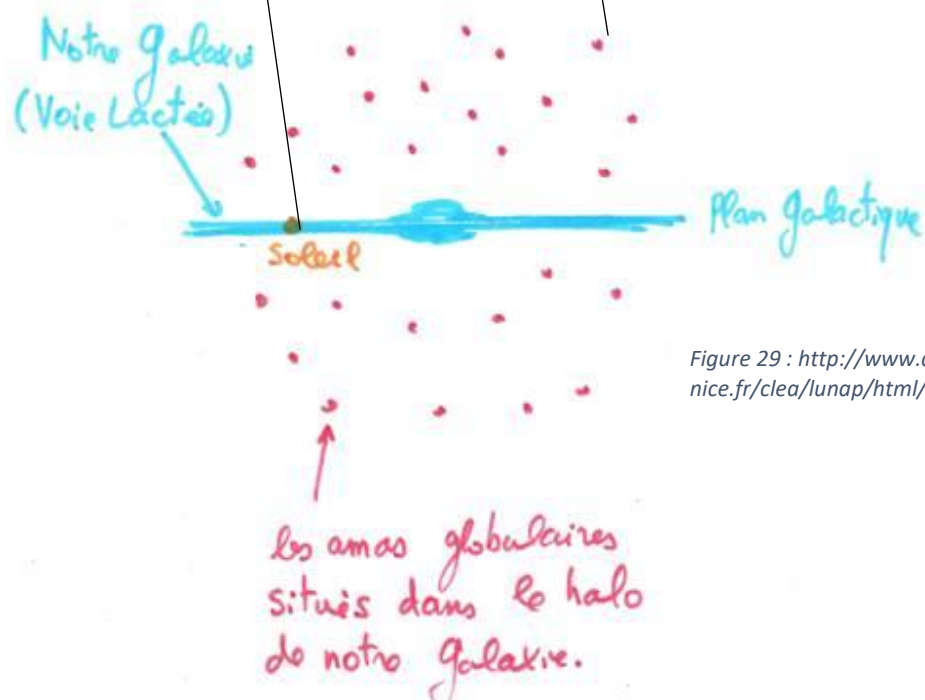 Notre Galaxie
(Voie Lactée)
Plan Galactique
Soleil
Figure 29 : http://www.
nice.fr/clea/lunap/html/
les amas globulaires
situés dans le halo
de notre Galaxie.